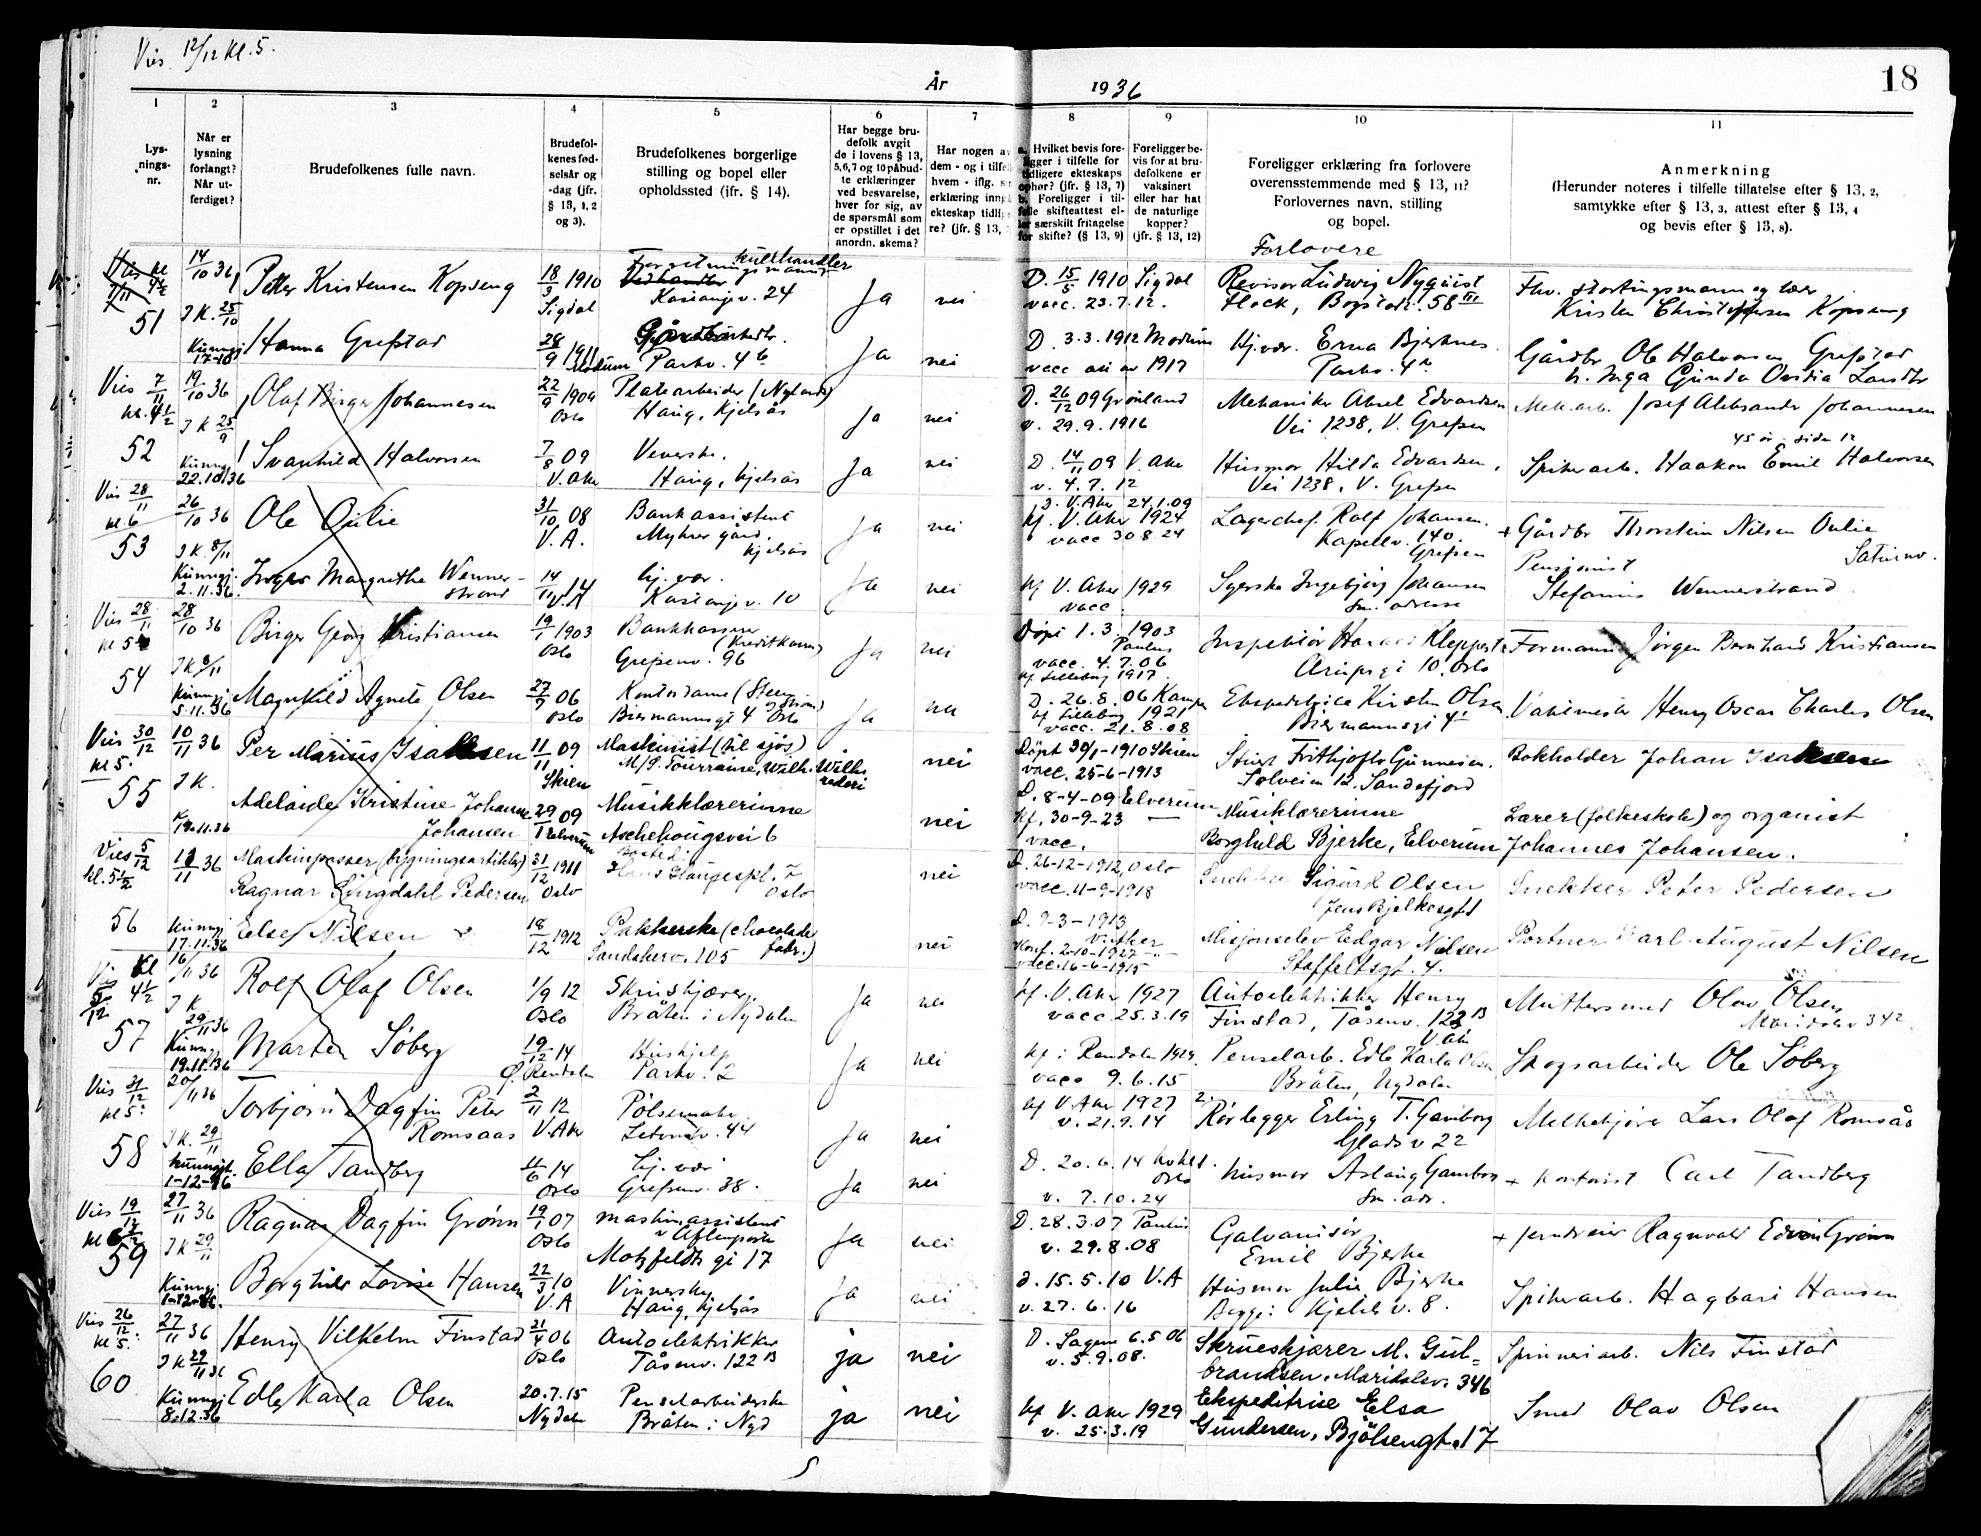 Vies 12/12 kl. 5.
År 1936
18
1 2 3 4 5 6 7 8 9 10 11
Lys-
nings-
nr.
Når er
lysning
forlangt?
Når ut-
ferdiget?
Brudefolkenes fulle navn.
Brudefol-
kenes fød-
selsår og
-dag (jfr.
§ 13, 1, 2
og 3).
Brudefolkenes borgerlige
stilling og bopel eller
opholdssted (ifr. § 14).
Har begge bru-
defolk avgit
de i lovens § 13,
5,6,7 og 10 påbud-
te erklæringer
ved besvarelse,
hver for sig, av
de spørsmål som
er opstillet i det
anordn. skema?
Har nogen av
dem - og i tilfe
hvem - iflg.
erklæring inng
ekteskap tidlig
re? (jfr. § 13,
Hvilket bevis fore-
ligger i tilfelle for
tidligere ekteskaps
ophør? (jfr. § 13, 7)
b. Foreligger i til-
felle skifteattest el-
ler særskilt fritagelse
for skifte? (§ 13, 9)
Foreligger be-
vis for at bru-
defolkene er
vaksinert
eller har hat
de naturlige
kopper?
(jfr. § 13, 12)
Foreligger erklæring fra forlovere
overensstemmende med § 13, 11?
Forlovernes navn, stilling
og bopel.
Anmerkning
(Herunder noteres i tilfelle tillatelse efter § 13, 2,
samtykke efter § 13, 3, attest efter § 13, 4
og bevis efter § 13, 8).
Forlovere
51
14/10 36
J K. 25/10
Petter Kristensen Kopseng
18/3 1910
Sigdal
Forretningsmann
kullhandler
Kastanjev. 24
Ja nei
D. 15/5 1910 Sigdal
vacc. 23.7.12.
Revisor Ludwig Nyquist
Flock, Bogstadv. 58 III
Fhv. stortingsmann og lærer
Kristen Christophersen Kopseng
Kunngj
17-10
Hanna Grefstad
28/9 1911
Modum
Parkv. 4b
Ja nei
D. 3.3.1912 Modum
vacc 1917
Hj.vær. Erna Bjerknes.
Parkv. 4
Gårdbr Ole Halvorsen Grefstad
Vies 7/11
kl. 4½
52
19/10 36
J K 25/9
Olaf Birger Johannesen
22/9 1909
Oslo
Platearbeider (Nyland)
Haug, Kjelsås
Ja nei
D. 26/12 09 Grønland
v. 29.9.1916
Mekaniker Aksel Edvardsen
Vei 1238, V. Grefsen
Mek. arb. Josef Aleksander Johannesen
45 år - siden 12
Kunngj
22.10.36
Svanhild Halvorsen
7/8 09
V. Aker
Veverske.
Haug, Kjelsås
Ja nei
D. 14/11 09 V. Aker
v. 4.7.12
Husmor Hilda Edvardsen,
Vei 1238, V. Grefsen
Spikerarb. Haakon Emil Halvorsen
Vies 28/11
kl. 6
53
26/10 36
J K. 8/11
Ole Oulie
31/10 08
V. A.
Bankassistent
Myhrer gård,
Kjelsås
Ja nei
D. V. Aker 24.1.09
kf. V. Aker 1924
vacc 30.8.24
Lagerchef Rolf Johansen.
Kapellv. 140.
Grefsen
+ Gårdbr Thorstein Nilsen Oulie
Kunngj.
2.11.36
Inger Margrethe Wenner-
strand
14/11 14
V. A
hj. vær.
Kastanjev. 10
Ja nei
kf V. Aker 1929
vacc
Syerske Ingebjørg Johansen
sm. adresse
Pensjonist
Stefanus Wennerstrand
Vies 28/11
kl 5½
54
28/10 36
J K 8/11
Birger Georg Kristiansen
19/1 1903
Oslo
Bankkasserer
(Kreditkassen)
Grefsenv. 96
Ja nei
Døpt 1.3.1903
Paulus
vacc. 4.7.06
Kf. Lilleborg 1917.
Inspektør Harald Kleppest
10. Oslo
Formann Jørgen Bernhard Kristiansen
Kunngj.
5.11.36
Magnhild Agnete Olsen
27/7 06
Oslo
Kontordame (Steen
& Strøm)
Biermannsgt 4 Oslo
Ja nei
D. 26.8.06 Kampen
kf Lilleborg 1921
vacc. 21.8.08
Ekspeditrice Kirsten Olsen
Biermannsgt 4
Vaktmester Henry Oscar Charles Olsen
Vies 30/12
kl 5.
55
10/11 36
J K.
Per Marius Isaksen
11/11 09
Skien
Maskinist (til sjøs)
M/S. Tourraine, Wilh. Wilh.
rederi
nei
Døpt 30/1-1910 Skien
vacc. 25-6-1913
Stuert Frithjof Gunnesen.
Solveien 12. Sandefjord
Bokholder Johan Isaksen
K
19.11.36
Adelaide Kristine Johanne
Johansen
29/1 09
Elverum
Musikklærerinne
Aschehougsvei 6
nei
D. 8-4-09 Elverum
Kf. 30-9-23 —
vacc.
Musiklærerinne
Borghild Bjerke, Elverum
Lærer (folkeskole) og organist
Johannes Johansen.
Vies 5/12
kl. 5½
56
11/11 36
Maskinpasser (bygningsartikler)
Ragnar Lingdahl Pedersen
31/12 1911
Oslo
Bosted:
Hans Haugespl. 7
Oslo
nei
D. 26-12-1912, Oslo
vacc. 11-9-1918
Snekker Sigurd Olsen
Jens Bjelkesgt 1
Snekker Peter Pedersen
Kunngj
17.11.36
Else Nilsen
18/12 1912
Pakkerske (chocolade
fabr.)
Sandakerv. 105
nei
D. 9-3-1913
V. Aker
Konf. 2-10-1927 -"-
vacc. 16-6-1915
Misjonselev Edgar Nilsen
Staffeltsgt. 4.
Portner Karl August Nilsen
Vies kl
5/12 4½
57
16/11 36
J K
29/11 36
Rolf Olaf Olsen
1/9 12
Oslo
Skruskjærer
Bråten i Nydalen
Ja nei
kf. V. Aker 1927
vacc 25.3.19
Autoelektriker Henry
Finstad, Tåsenv. 122 B
V. Ak
Muttersmed Olav Olsen
Maridalsv 342
Kunngj
19.11.36
Marten Søberg
19/12 14
Ø. Rendalen
Hushjelp
Parkv. 2
Ja nei
kf. i Rendalen 1929
vacc 9.6.15
Penselarb. Edle Karla Olsen
Bråten, Nydalen
Skogsarbeider Ole Søberg
Vies 31/12
kl 5:
58
20/11 36
J K. 29/11
Torbjørn Dagfin Peter
Romsaas
2/11 12
V. Aker
Pølsemaker
44
Ja nei
kf V. Aker 1927
v. 21.9.14
Rørlegger Erling T. Gamborg
Glads v 22
Melkekjører Lars Olaf Romsås
kunngjt.
1-12-36
Ella Tandberg
11/6 14
Oslo
hj. vær
Grefsenv. 38.
Ja nei
D. 20.6.14
Oslo
v. 7.10.24
Husmor Aslaug Gamborg
sm. adr.
+ Kontorist Carl Tandberg
Vies 19/12
kl 6½
59
27/11 36
J K 29/11
Ragnar Dagfin Grønn
19/1 07
Oslo
maskinassistent
v Aftenposten
Motzfeldts gt 17
Ja nei
D. 28.3.07 Paulus
v. 29.8.08
Galvanisør
Emil Bjerke
+ Ragnvald Edvin Grønn
Kunngj
1-12-36.
Borghild Lovise Hansen
22/3 10
V. A
Vinnerske
Haug, Kjelsås
Ja nei
d. 15.5.10 V. A
v. 27.6.16
Husmor Julie Bjerke
Begge: Kjelds v. 8.
Spikerarb. Hagbart Hansen
Vies 26/12
kl 5:
60
27/11 36
J K 29/11 36
Henry Vilhelm Finstad
21/4 06
Oslo
Autoelektrikker
Tåsenv. 122 B
ja nei
D. Sagene 6.5 06
v. 5.9.08.
Skrueskjærer M. Gul-
brandsen, Maridalsv. 346
Spinneriarb. Nils Finstad
Kunngj
8.12.36
Edle Karla Olsen
20.7.15
Nydalen
Penselarbeiderske
Bråten i Nyd
ja nei
kf V. Aker 1929
v. 25.3.19
Ekspeditrise Elsa
Gundersen, Bjølsengt. 17
Smed Olav Olsen